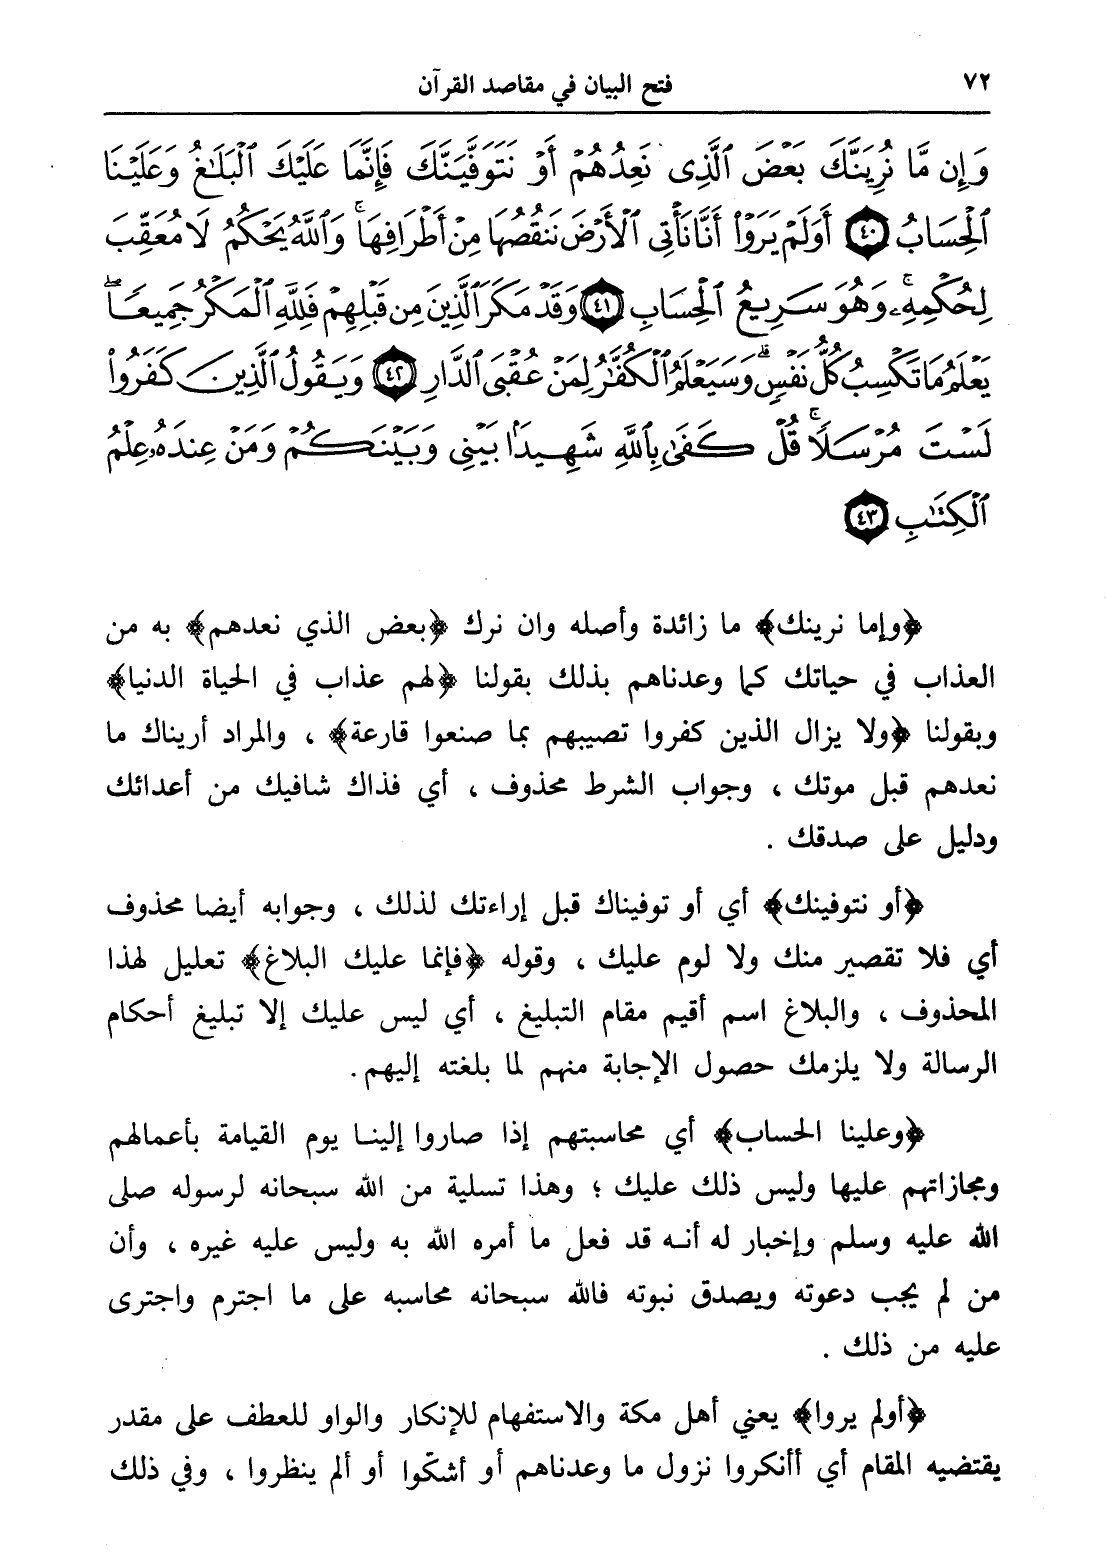 ٧٢ فتح البيان في مقاصد القرآن
وَإِن مَّا نُرِيَنَّكَ بَعْضَ ٱلَّذِى نَعِدُهُمْ أَوْ نَتَوَفَّيَنَّكَ فَإِنَّمَا عَلَيْكَ ٱلْبَلَـٰغُ وَعَلَيْنَا
ٱلْحِسَابُ ٤٠ أَوَلَمْ يَرَوْا۟ أَنَّا نَأْتِى ٱلْأَرْضَ نَنقُصُهَا مِنْ أَطْرَافِهَا ۚ وَٱللَّهُ يَحْكُمُ لَا مُعَقِّبَ
لِحُكْمِهِۦ ۚ وَهُوَ سَرِيعُ ٱلْحِسَابِ ٤١ وَقَدْ مَكَرَ ٱلَّذِينَ مِن قَبْلِهِمْ فَلِلَّهِ ٱلْمَكْرُ جَمِيعًا ۖ
يَعْلَمُ مَا تَكْسِبُ كُلُّ نَفْسٍ ۗ وَسَيَعْلَمُ ٱلْكُفَّـٰرُ لِمَنْ عُقْبَى ٱلدَّارِ ٤٢ وَيَقُولُ ٱلَّذِينَ كَفَرُوا۟
لَسْتَ مُرْسَلًا ۚ قُلْ كَفَىٰ بِٱللَّهِ شَهِيدًۢا بَيْنِى وَبَيْنَكُمْ وَمَنْ عِندَهُۥ عِلْمُ
ٱلْكِتَـٰبِ ٤٣
﴿وإما نرينك﴾ ما زائدة وأصله وان نرك ﴿بعض الذي نعدهم﴾ به من
العذاب في حياتك كما وعدناهم بذلك بقولنا ﴿لهم عذاب في الحياة الدنيا﴾
وبقولنا ﴿ولا يزال الذين كفروا تصيبهم بما صنعوا قارعة﴾ ، والمراد أريناك ما
نعدهم قبل موتك ، وجواب الشرط محذوف ، أي فذاك شافيك من أعدائك
ودليل على صدقك .
﴿أو نتوفينك﴾ أي أو توفيناك قبل إراءتك لذلك ، وجوابه أيضا محذوف
أي فلا تقصير منك ولا لوم عليك ، وقوله ﴿فإنما عليك البلاغ﴾ تعليل لهذا
المحذوف ، والبلاغ اسم أقيم مقام التبليغ ، أي ليس عليك إلا تبليغ أحكام
الرسالة ولا يلزمك حصول الإجابة منهم لما بلغته إليهم .
﴿وعلينا الحساب﴾ أي محاسبتهم إذا صاروا إلينا يوم القيامة بأعمالهم
ومجازاتهم عليها وليس ذلك عليك ؛ وهذا تسلية من الله سبحانه لرسوله صلى
الله عليه وسلم وإخبار له أنه قد فعل ما أمره الله به وليس عليه غيره ، وأن
من لم يجب دعوته ويصدق نبوته فالله سبحانه محاسبه على ما اجترم واجترى
عليه من ذلك .
﴿أولم يروا﴾ يعني أهل مكة والاستفهام للإنكار والواو للعطف على مقدر
يقتضيه المقام أي أأنكروا نزول ما وعدناهم أو أشكّوا أو ألم ينظروا ، وفي ذلك